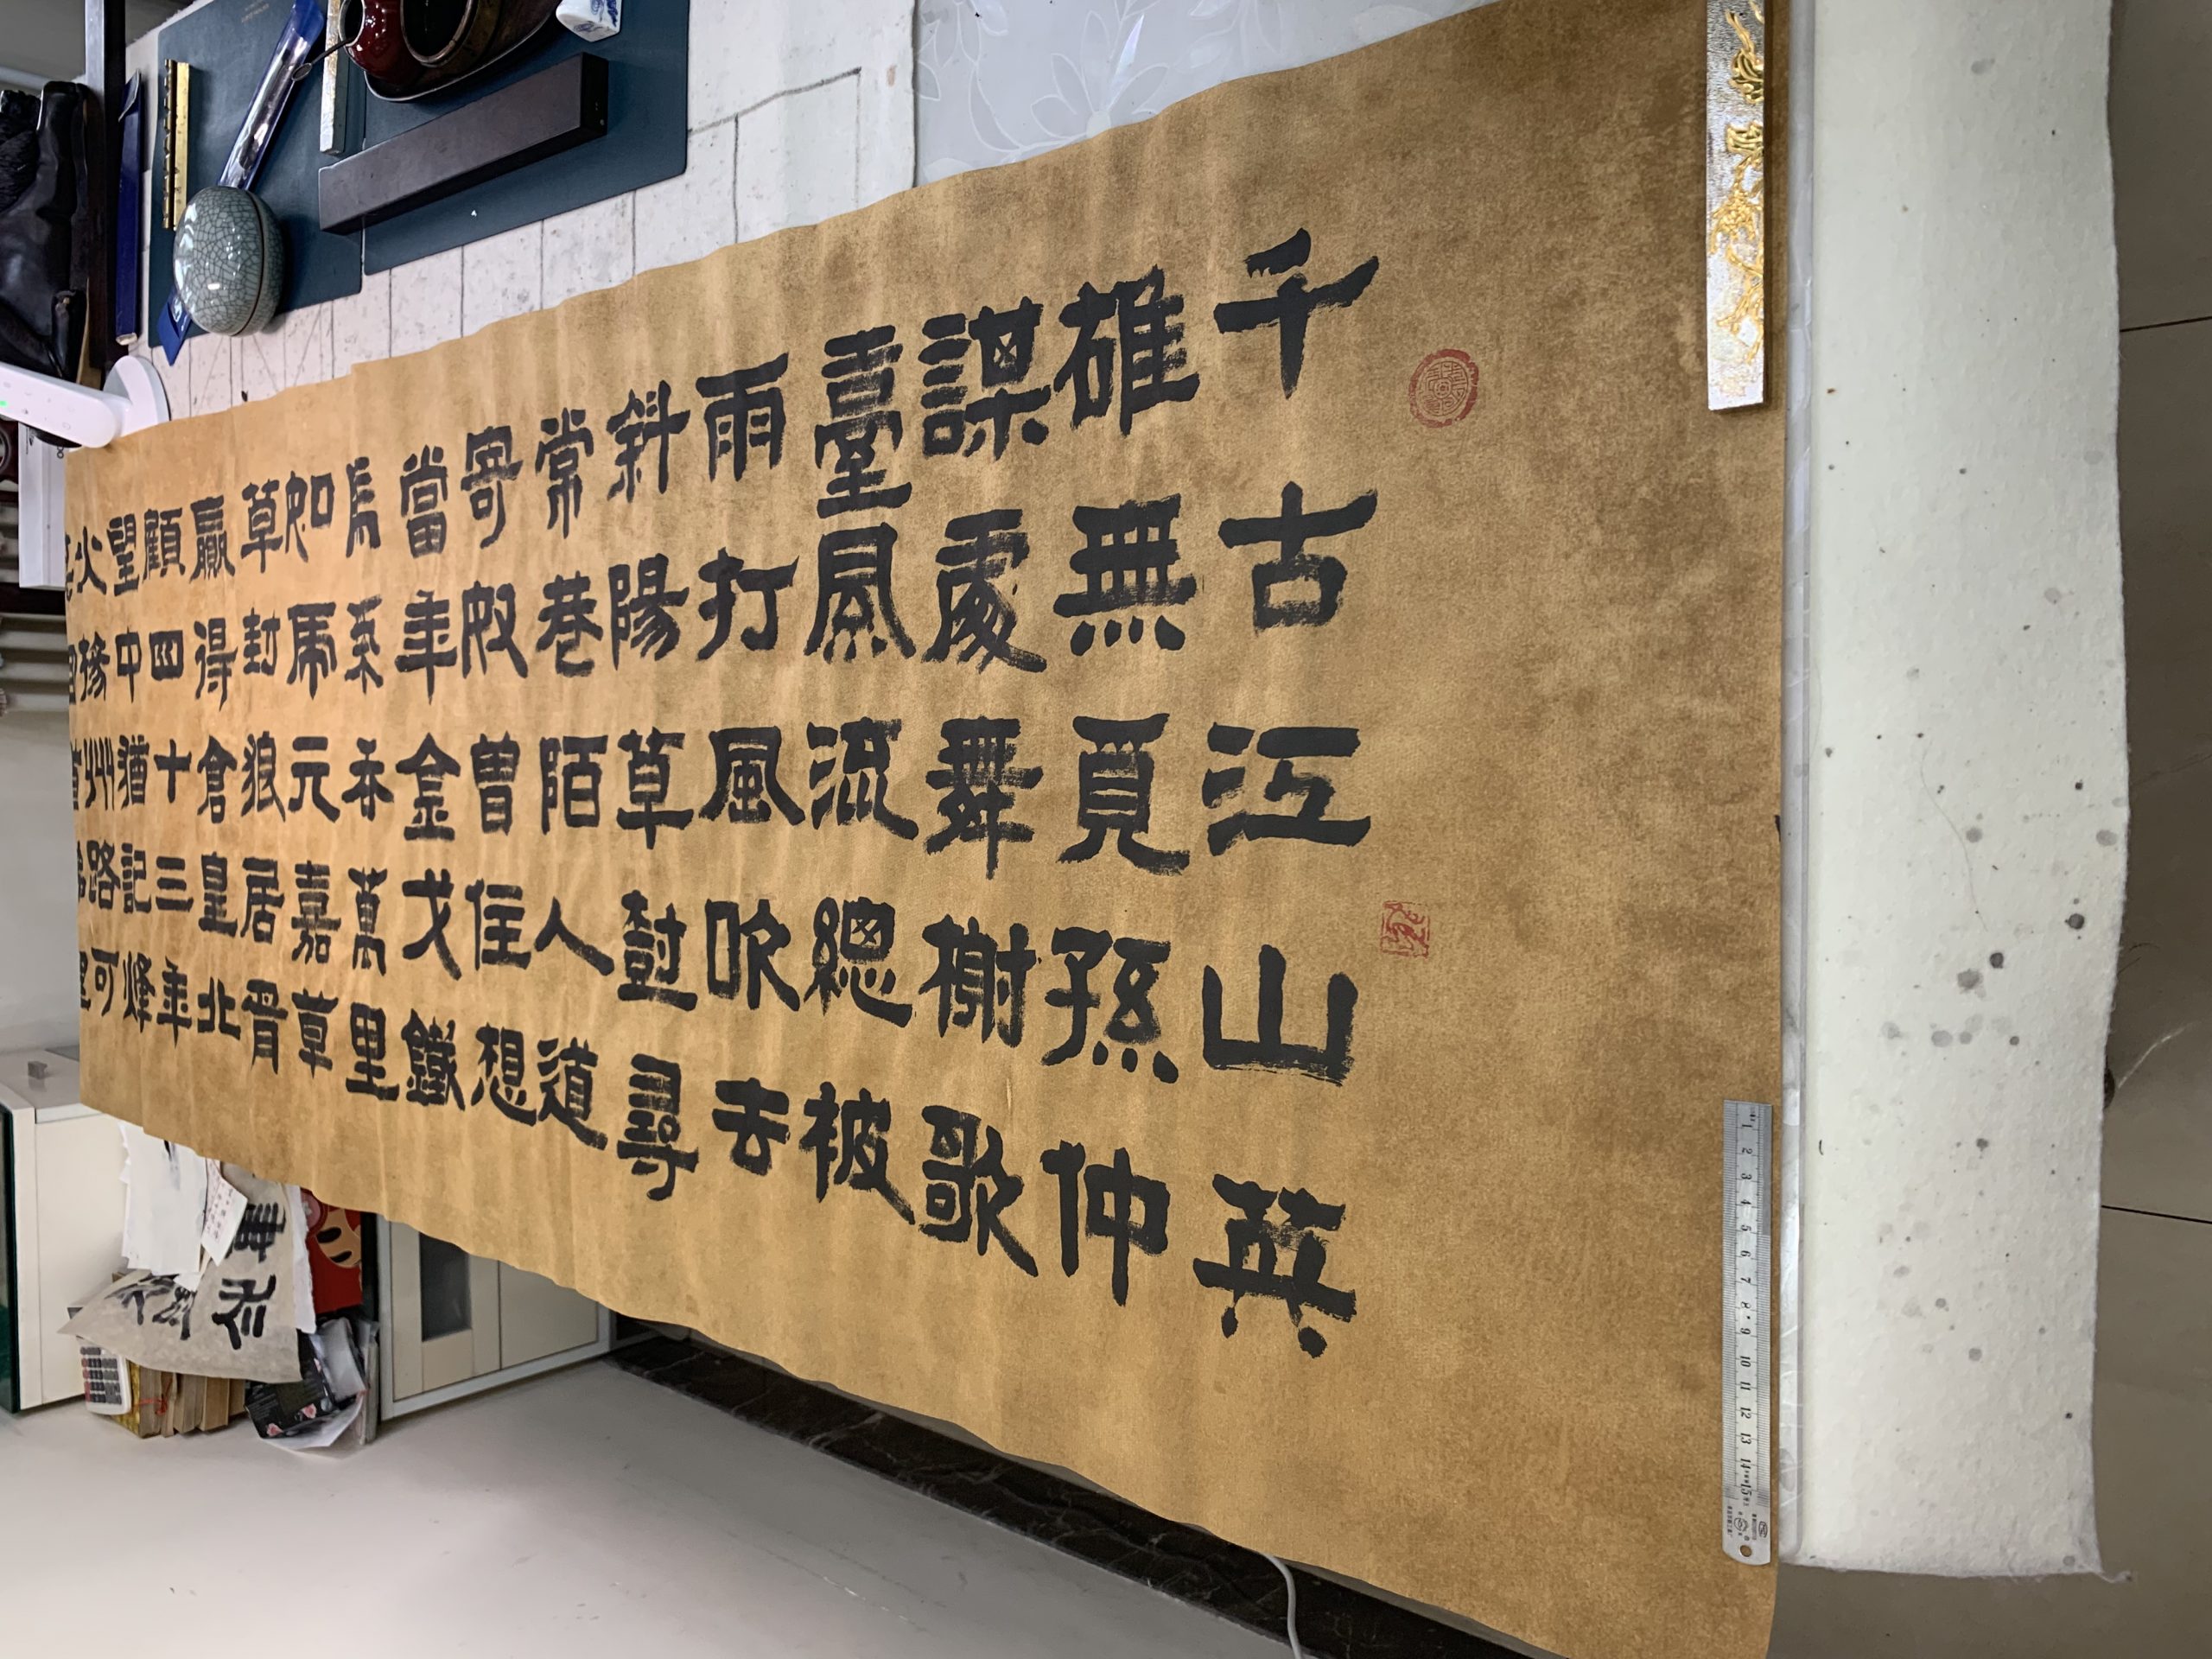 千古江山英
雄無覓孫仲
謀處舞榭歌
臺風流總被
雨打風吹去
斜陽草樹尋
常巷陌人道
寄奴曾住想
當年金戈鐵
馬氣吞萬里
如虎元嘉草
草封狼居胥
贏得倉皇北
顧四十三年
望中猶記烽
火揚州路可
1 2 3 4 5 6 7 8 9 10 11 12 13 14 15